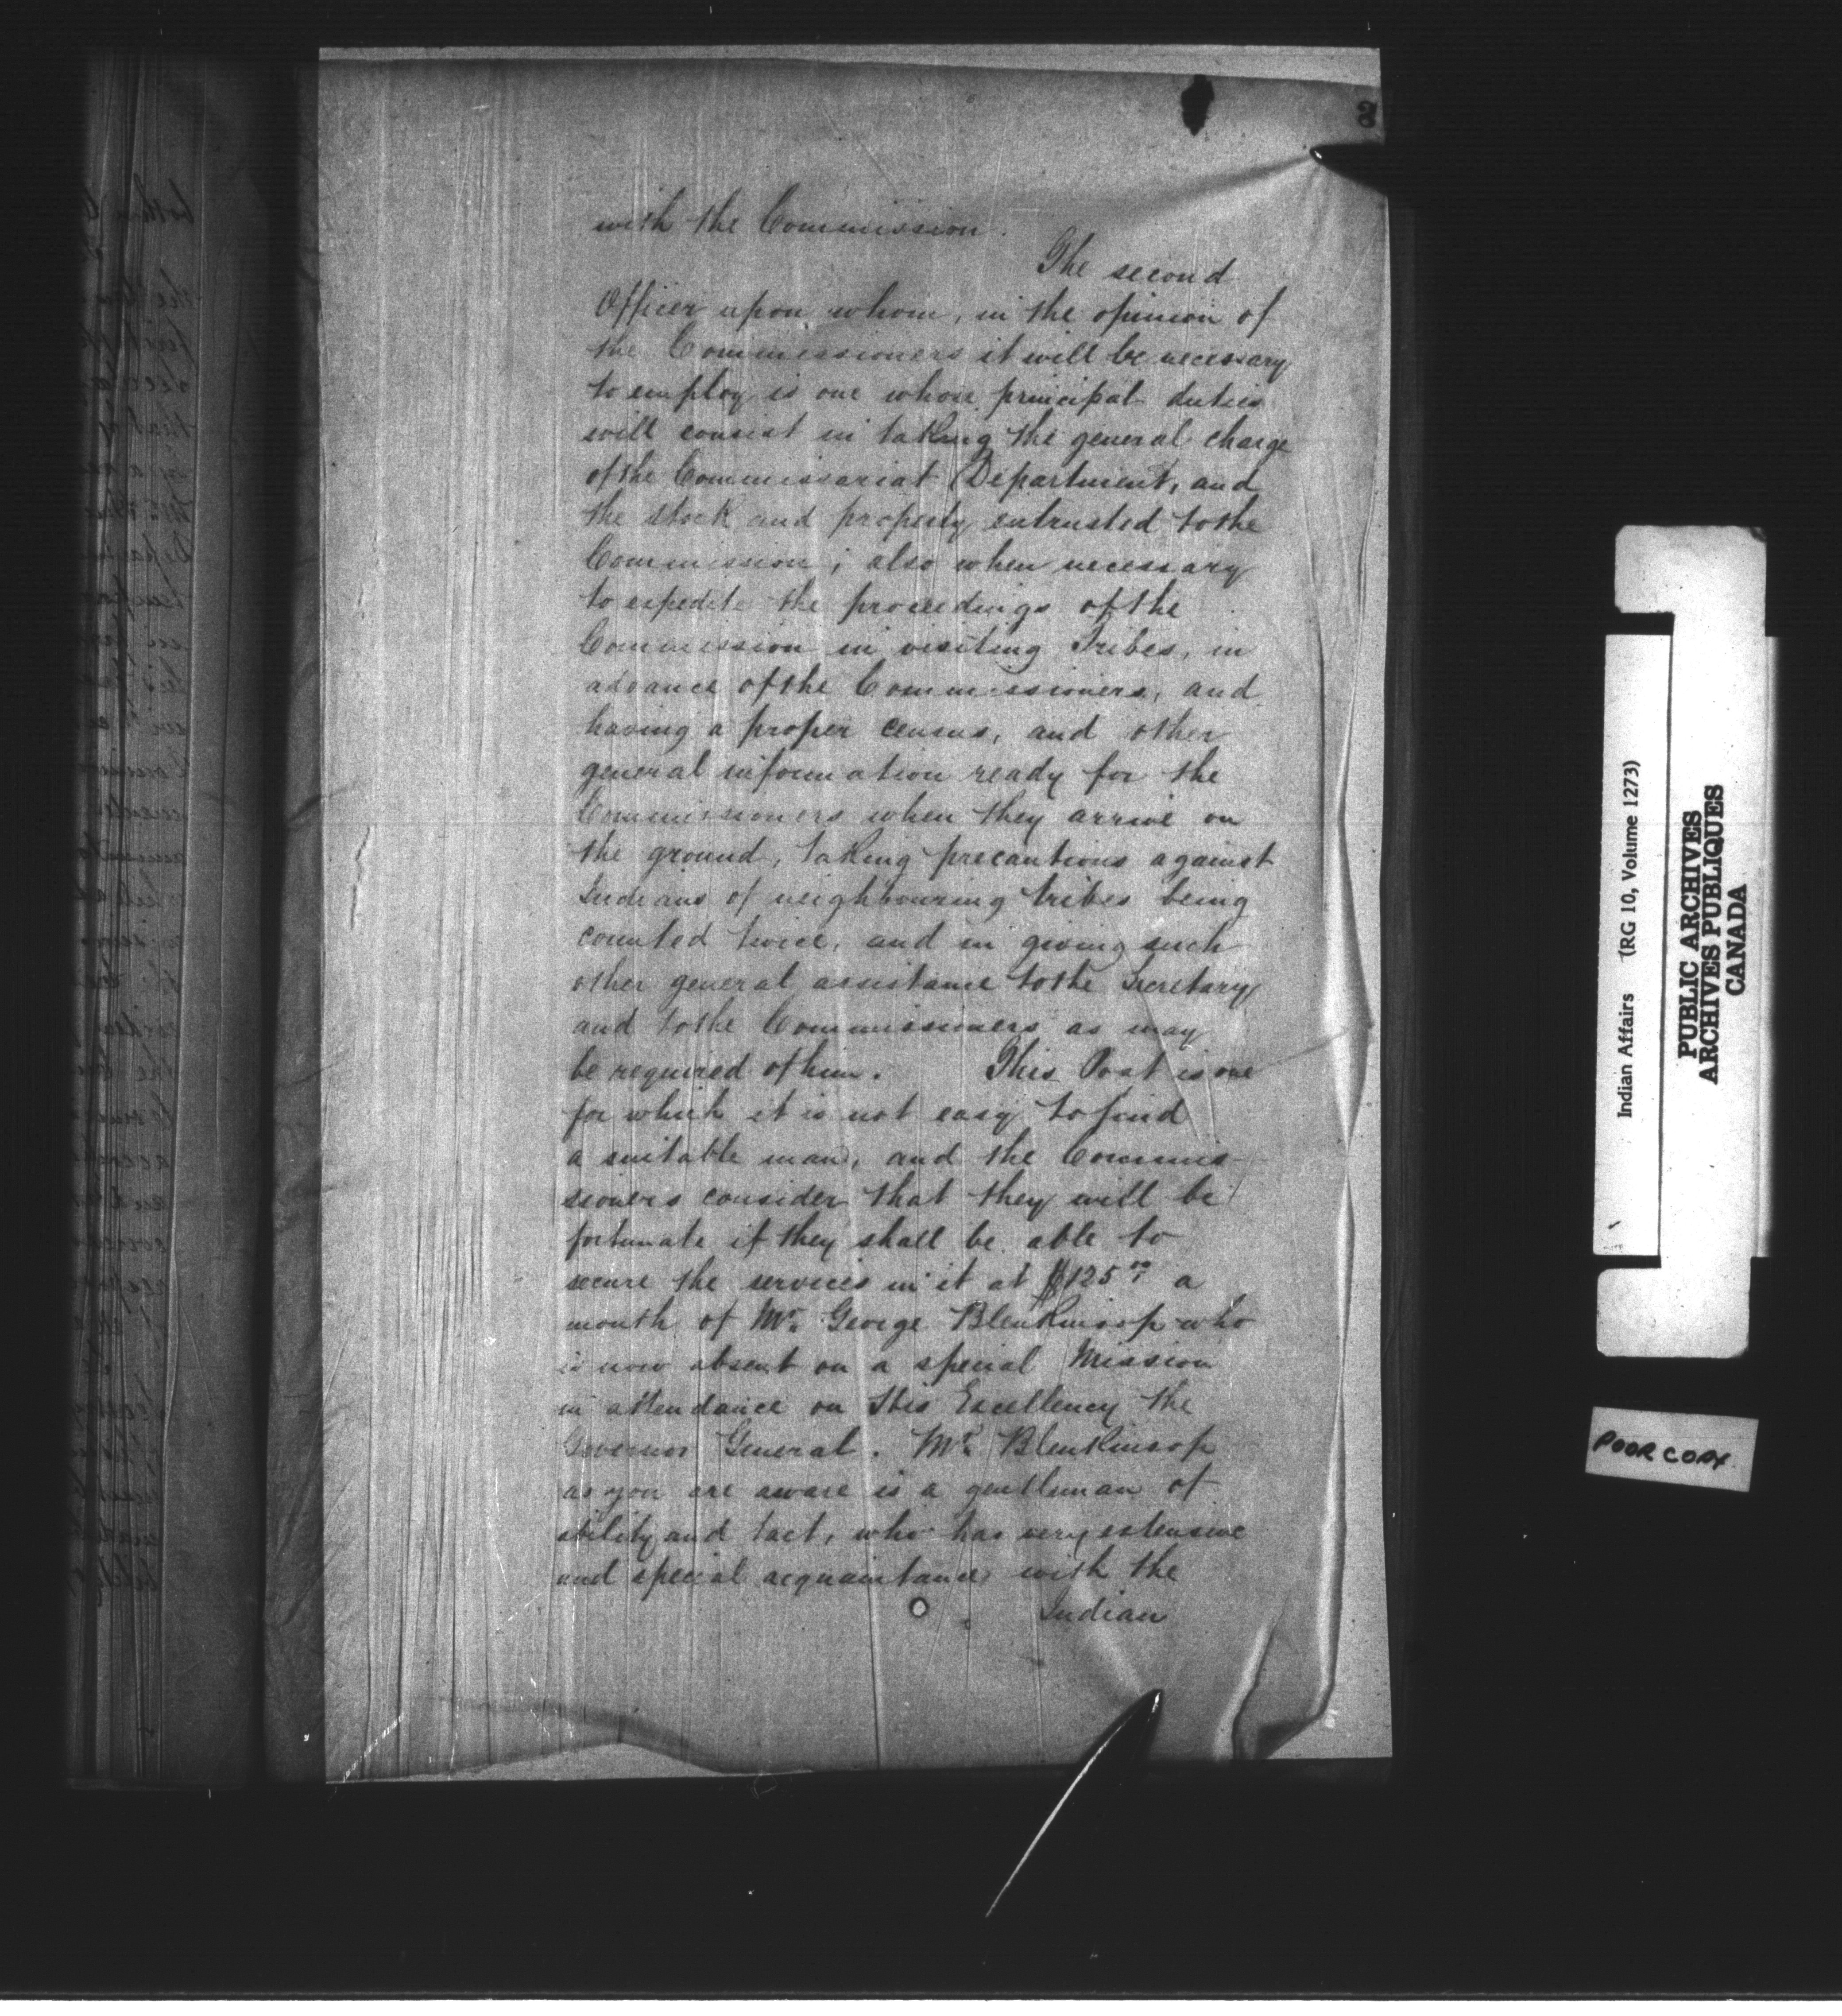 with the Commission.
The second
Officer upon whom, in the opinion of
the Commissioners it will be necessary
to employ is one whose principal duties
will consist in taking the general charge
of the Commissariat Department, and
the stock and property entrusted to the
Commission; also when necessary
to expedite the proceedings of the
Commission in visiting Tribes, in
advance of the Commissioners, and
having a proper census, and other
general information ready for the
Commissioners when they arrive on
the ground, taking precautions against
Indians of neighbouring tribes being
counted twice, and in giving such
other general assistance to the Secretary
and to the Commissioners as may
be required of him. This Post is one
for which it is not easy to find
a suitable man, and the Commis-
sioners consider that they will be
fortunate if they shall be able to
secure the services in it at $125.00 a
month of Mr. George Blenkinsop who
is now absent on a special Mission
in attendance on His Excellency the
Governor General. Mr. Blenkinsop
as you are aware is a gentleman of
ability and tact, who has very extensive
and special acquaintance with the
Indian
Indian Affairs (RG 10, Volume 1273)
PUBLIC ARCHIVES
ARCHIVES PUBLIQUES
CANADA
POOR COPY